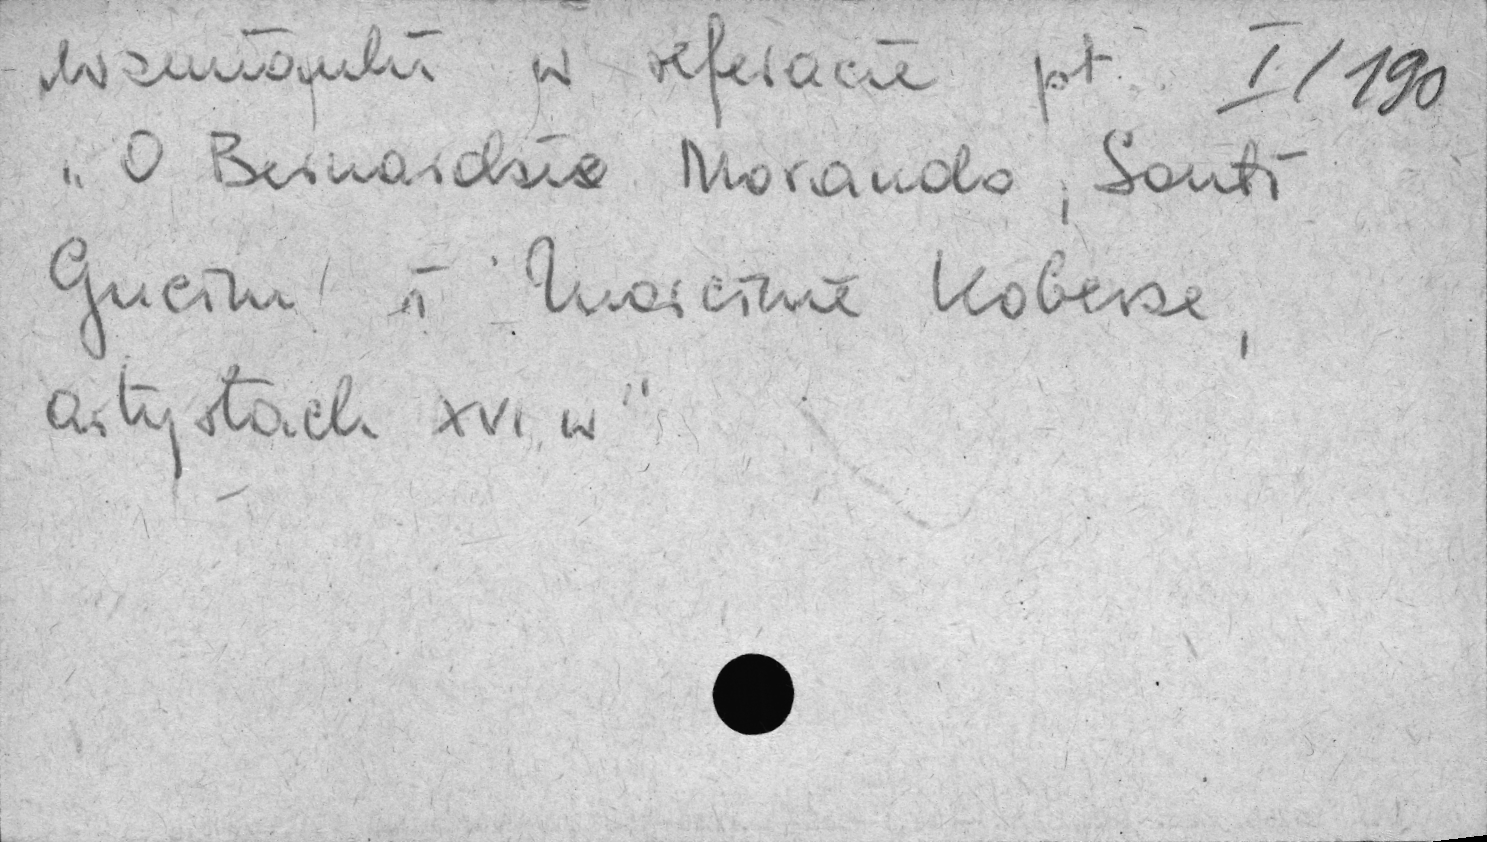 wzmianki w referacie pt. I/190
"O Bernardzie Morando, Santi
Gucim i Marcinie Koberze,
artystach XVI w"